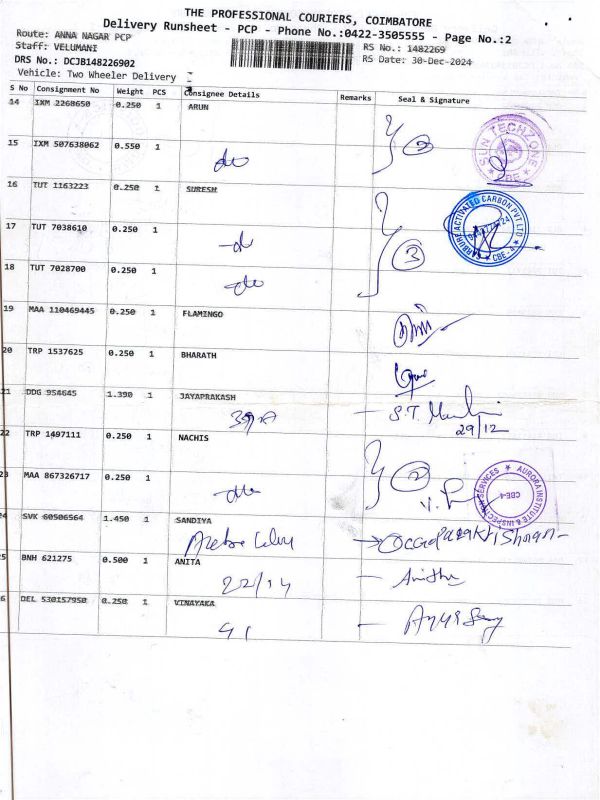 THE PROFESSIONAL COURIERS, COIMBATORE
Delivery Runsheet - PCP - Phone No.:0422-3505555 - Page No.:2
Route: ANNA NAGAR PCP
RS No.: 1482269
Staff: VELUMANI
RS Date: 30-Dec-2024
DRS No.: DCJB148226902
Vehicle: Two Wheeler Delivery
S No Consignment No Weight PCS Consignee Details Remarks Seal & Signature
14 IXM 2268650 0.250 1 ARUN
SUN TECHZONE CBE
15 IXM 507638062 0.550 1 do
2
16 TUT 1163223 0.250 1 SURESH
CARBURE ACTIVATED CARBON PVT LTD CBE - 4
17 TUT 7038610 0.250 1 do
3
18 TUT 7028700 0.250 1 do
19 MAA 110469445 0.250 1 FLAMINGO
20 TRP 1537625 0.250 1 BHARATH
21 DDG 954645 1.390 1 JAYAPRAKASH
29/12
22 TRP 1497111 0.250 1 NACHIS
2
AURORA INSTITUTE & INSPECTION SERVICES CBE-4
23 MAA 867326717 0.250 1 do
24 SVK 60506564 1.450 1 SANDIYA
25 BNH 621275 0.500 1 ANITA
22/14 Anitha
26 DEL 530157950 0.250 1 VINAYAKA